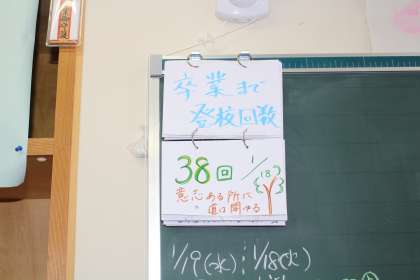 卒業まで
登校回数
38回
1/18
意志ある所に
道は開ける
1/19(水) 1/18(火)